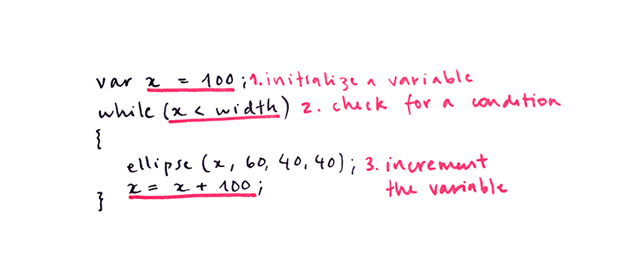 var x = 100; 1. initialize a variable
while (x < width) 2. check for a condition
{
ellipse (x, 60, 40, 40); 3. increment
x = x + 100; the variable
}